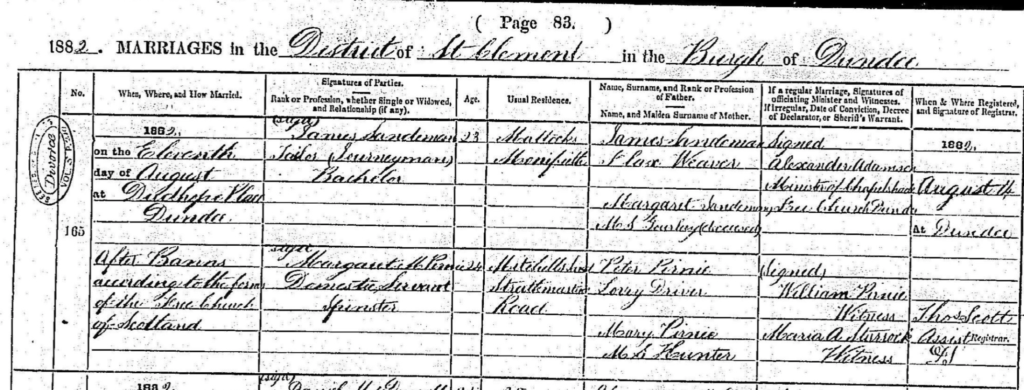 ( Page 83. )
1882. MARRIAGES in the District of St Clement in the Burgh of Dundee
No.
When, Where, and How Married.
Signatures of Parties.
Rank or Profession, whether Single or Widowed, and Relationship (if any).
Age.
Usual Residence.
Name, Surname, and Rank or Profession of Father.
Name, and Maiden Surname of Mother.
If a regular Marriage, Signatures of officiating Minister and Witnesses.
If irregular, Date of Conviction, Decree of Declarator, or Sheriff's Warrant.
When & Where Registered, and Signature of Registrar.
Divorce
165
1882.
on the Eleventh
day of August
at
Dundee
After Banns
according to the form
of the Free Church
of Scotland
(signed)
James Sandeman
Tailor (Journeyman)
Bachelor
(signed)
Margaret M. Pirnie
Domestic Servant
Spinster
23
24
Mattocks
Monifieth
Strathmartine
Road
James Sandeman
Flax Weaver
Margaret Sandeman
M.S. (deceased)
Peter Pirnie
Lorry Driver
Mary Pirnie
M.S. Hunter
Signed
Alexander Adamson
Minister of Chapelshade
Free Church Dundee
(Signed)
William Pirnie
Witness
Maria A
Witness
1882.
August 14
At Dundee
Thos Scott
Assist Registrar.
1882